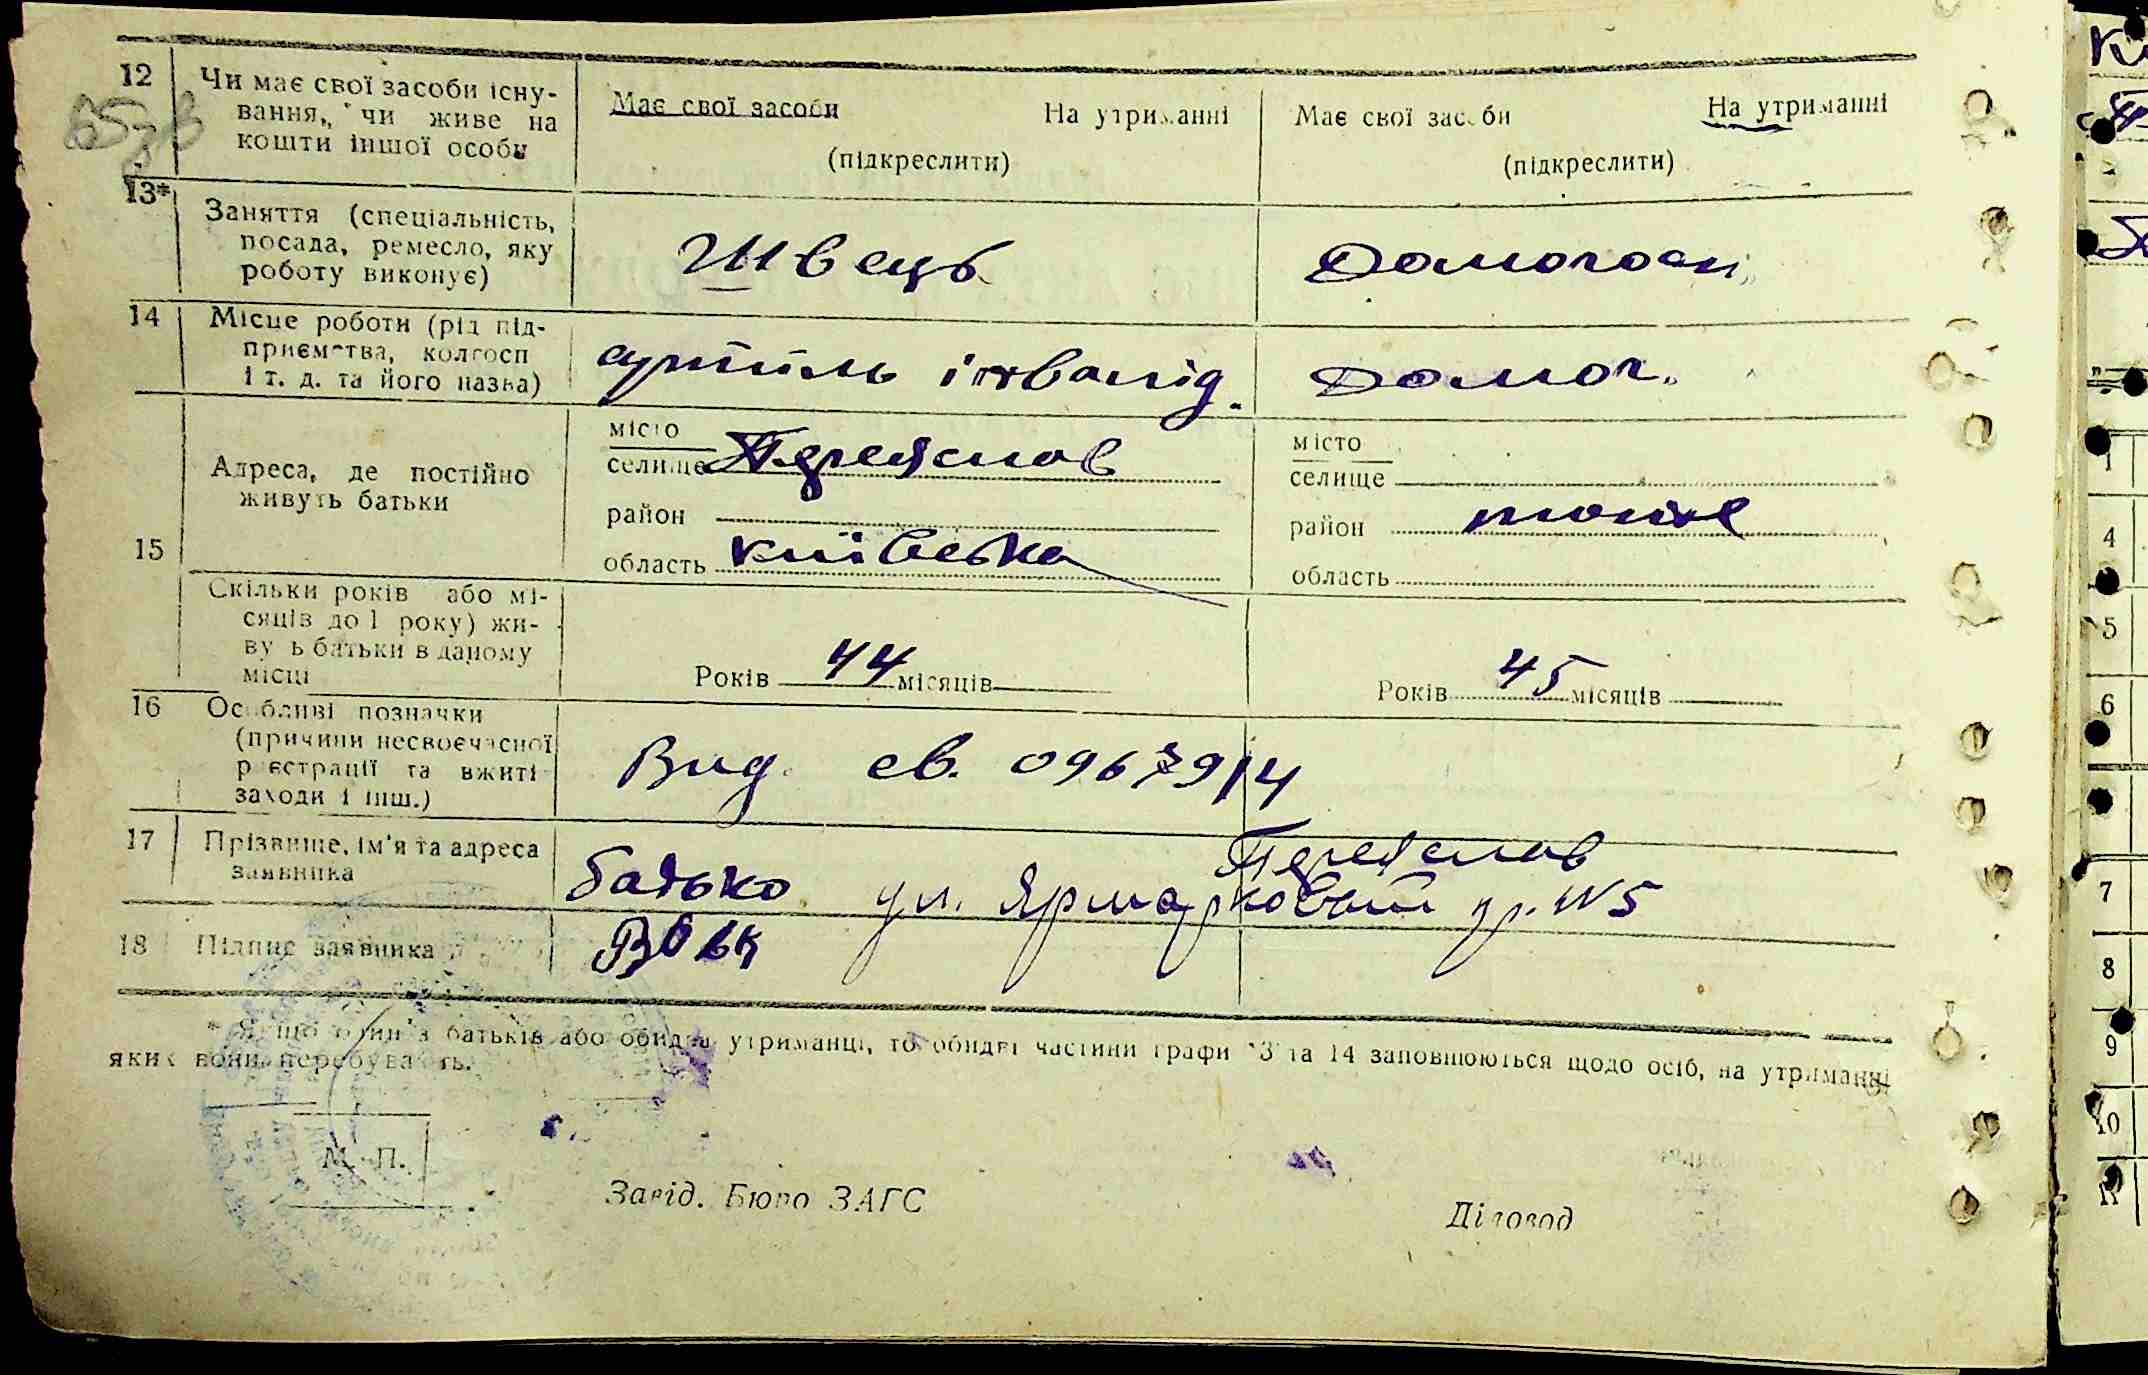 12
Чи має свої засоби існу-
вання, чи живе на
кошти іншої особи
Має свої засоби
На утриманні
(підкреслити)
Має свої засоби
На утриманні
(підкреслити)
13*
Заняття (спеціальність,
посада, ремесло, яку
роботу виконує)
Швець
Домогосп.
14
Місце роботи (рід під-
приємства, колгосп
і т. д. та його назва)
артіль інвалід.
Домог.
15
Адреса, де постійно
живуть батьки
місто
селище Переяслав
район
область київська
місто
селище
район тоже
область
Скільки років або мі-
сяців до 1 року) жи-
вуть батьки в даному
місці
Років 44 місяців
Років 45 місяців
16
Особливі позначки
(причини несвоєчасної
реєстрації та вжиті
заходи і інш.)
Вид. св.
17
Прізвище, ім'я та адреса
заявника
Переяслав
батько ул. Ярмарковий №5
18
Підпис заявника
* Якщо один з батьків або обидва утриманці, то обидві частини графи 13 та 14 заповнюються щодо осіб, на утриманні
яких вони перебувають.
М. П.
Завід. Бюро ЗАГС
Діловод
1
4
5
6
7
8
9
10
11